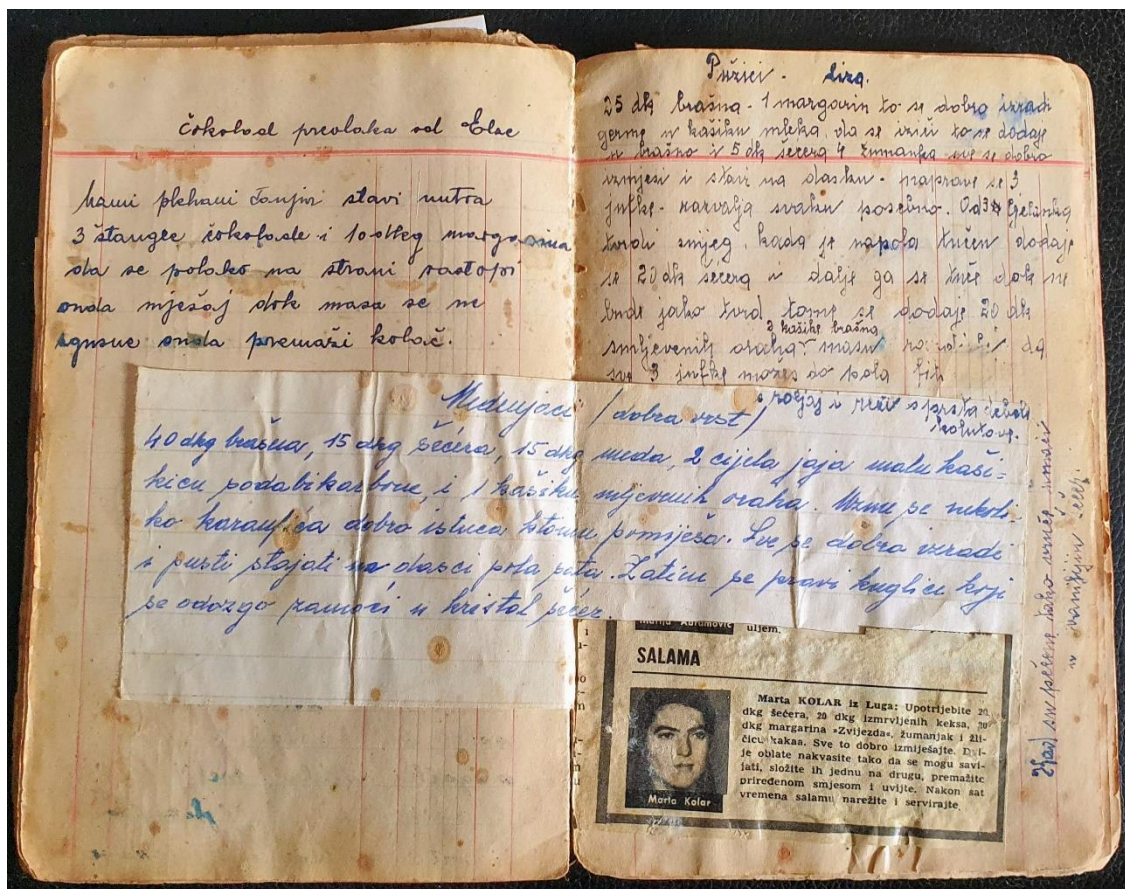 čokolad preolaka od Else
hami plehani tanjir stavi nutra
3 štangle čokolade i 10 dkg margarina
da se polako na strani rastopi
onda mješaj dok masa se ne
zgusne onda premaži kolač.
Pužići - Liza.
25 dkg brašna - 1 margarin to se dobro izradi
germe u kašiku mleka, da se iziđi to se dodaje
u brašno i 5 dkg šećera 4 žumanjka sve se dobro
izmjesi i stavi na dasku - naprave se 3
jufke - razvalja svaku posebno. Od 3 bjelanjka
tvrdi snijeg, kada je napola tučen dodaje
se 20 dk šećera i dalje ga se tuče dok ne
bude jako tvrd tome se dodaje 20 dk
3 kašike brašna
smljevenih oraha masu da
sve 3 jufke možeš do pola
roljaj i reži s prsta debeli
kolutove.
Medenjaci / dobra vrst /
40 dkg brašna, 15 dkg šećera, 15 dkg meda, 2 cijela jaja malu kaši-
kicu sodabikarbone, i 1 kašiku mljevenih oraha. Uzme se nekoli-
ko karanfića dobro istuca stome pomiješa. Sve se dobro izradi
i pusti stajati na dasci pola sata. Zatim se pravi kuglice koji
se odozgo zamoči u kristal šećer.
Marija Abramović
uljem.
SALAMA
Marta KOLAR iz Luga: Upotrijebite 20
dkg šećera, 20 dkg izmrvljenih keksa, 20
dkg margarina »Zvijezda«, žumanjak i žli-
čicu kakaa. Sve to dobro izmiješajte. Dvi-
je oblate nakvasite tako da se mogu savi-
jati, složite ih jednu na drugu, premažite
priređenom smjesom i uvijte. Nakon sat
vremena salamu narežite i servirajte.
Marta Kolar
Kad su pečeni tako vruće umači
u vanilijin šećer